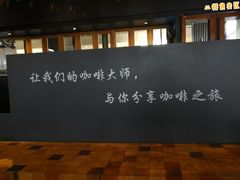 让我们的咖啡大师，
与你分享咖啡之旅